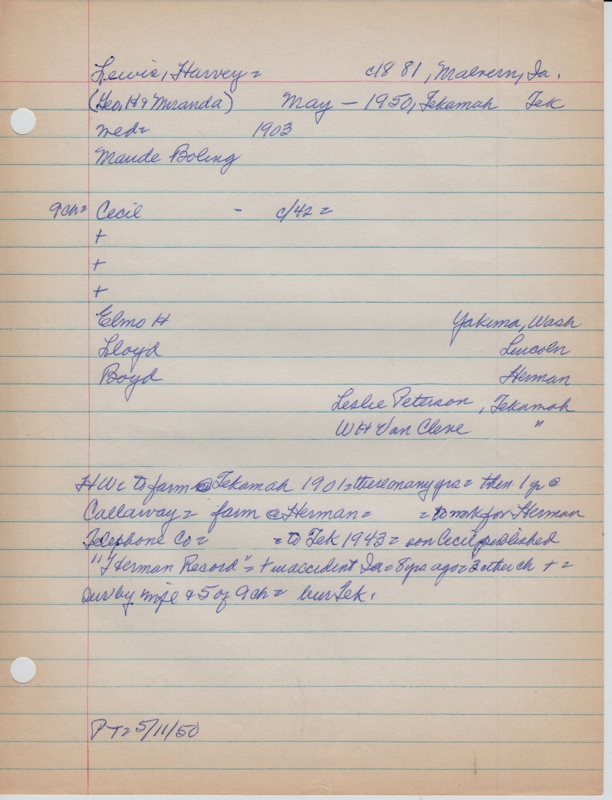 Lewis, Harvey = c1881, Malvern, Ia.
(Geo. H & Miranda) May - 1950, Tekamah Tek
wed= 1903
Maude Boling
9ch= Cecil - c/42 =
+
+
+
Elmo H Yakima, Wash
Lloyd Lincoln
Boyd Herman
Leslie Peterson, Tekamah
WH Van Cleve "
HWL to farm @ Tekamah 1901= there many yrs= then 1 yr @
Callaway= farm @ Herman= = to wrk for Herman
Telephone Co= = to Tek 1943= son Cecil published
"Herman Record"= + in accident Ia= 8 yrs ago= 3 other ch + =
surv by wife & 5 of 9 ch= bur Tek.
PT= 5/11/50